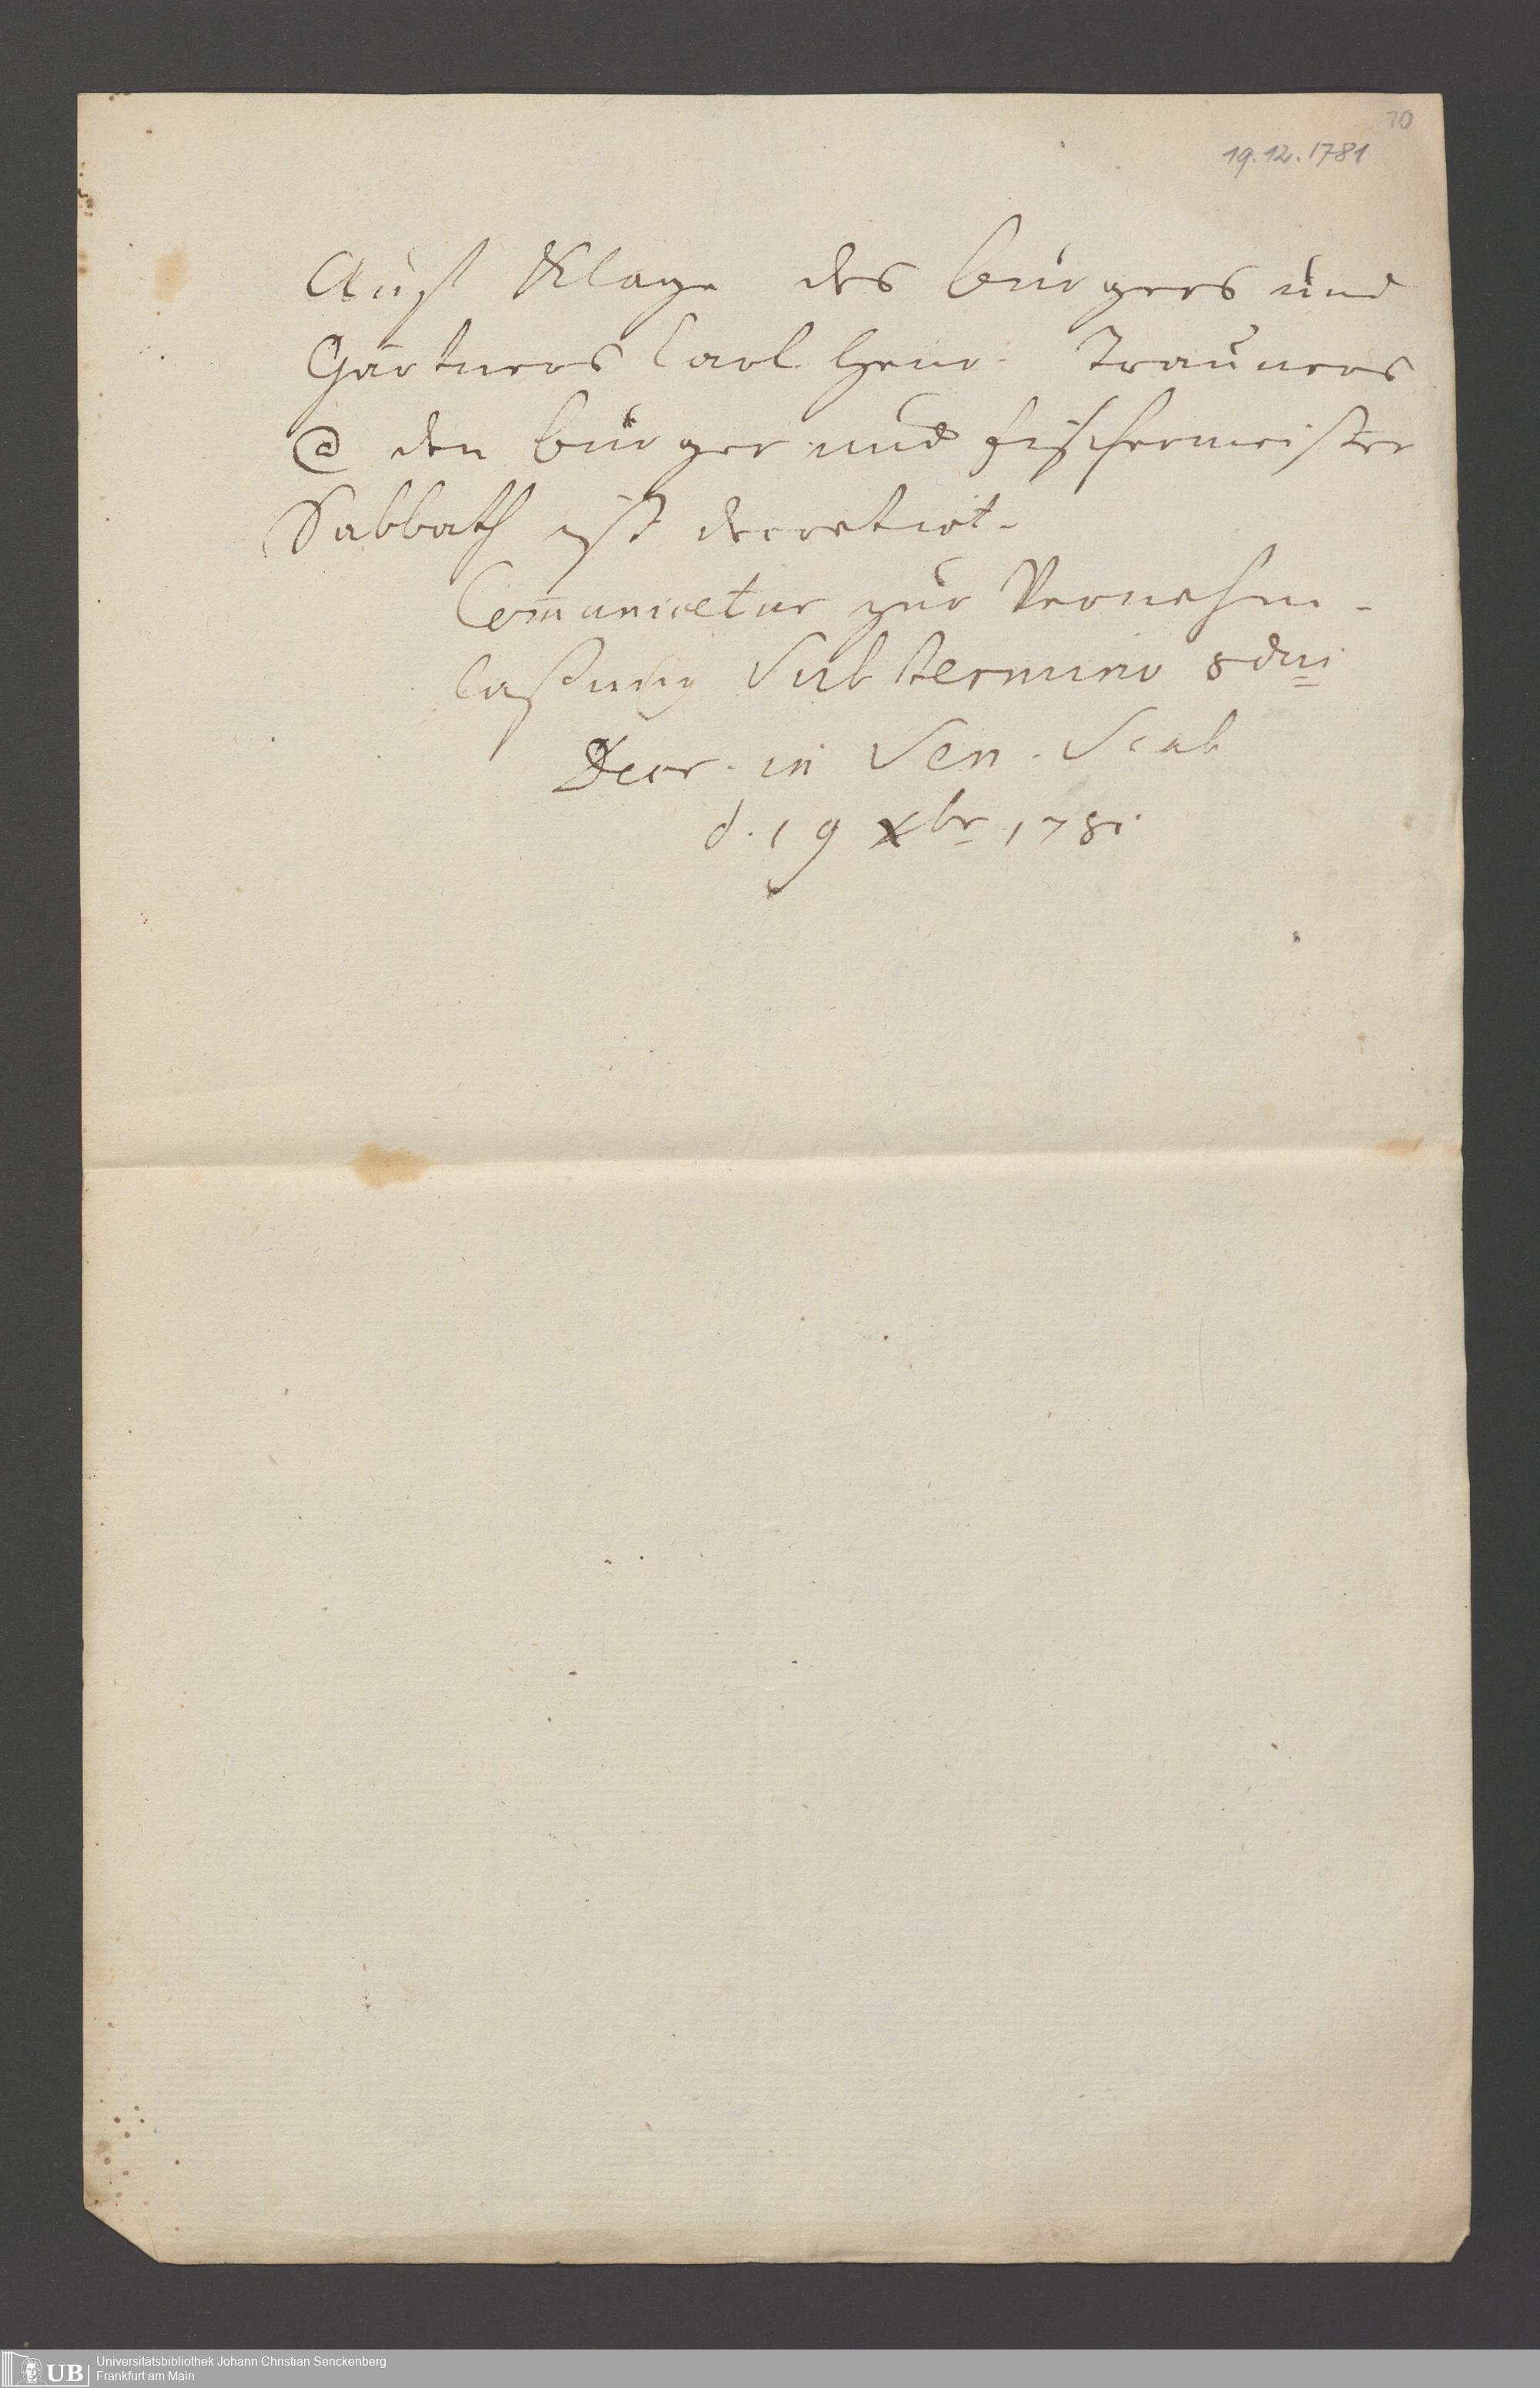 70
19.12.1781
Auf Klage des Bürgers und
Gärtners Carl Henr. Trauners
@ den Bürger und Fischermeister
Sabbath ist decretirt.
Com̅unicetur zur Vernehm-
laßung Sub termino 8dui
Decr. in Sen. Scab
d. 19 Xbr 1781.
UB
Universitätsbibliothek Johann Christian Senckenberg
Frankfurt am Main